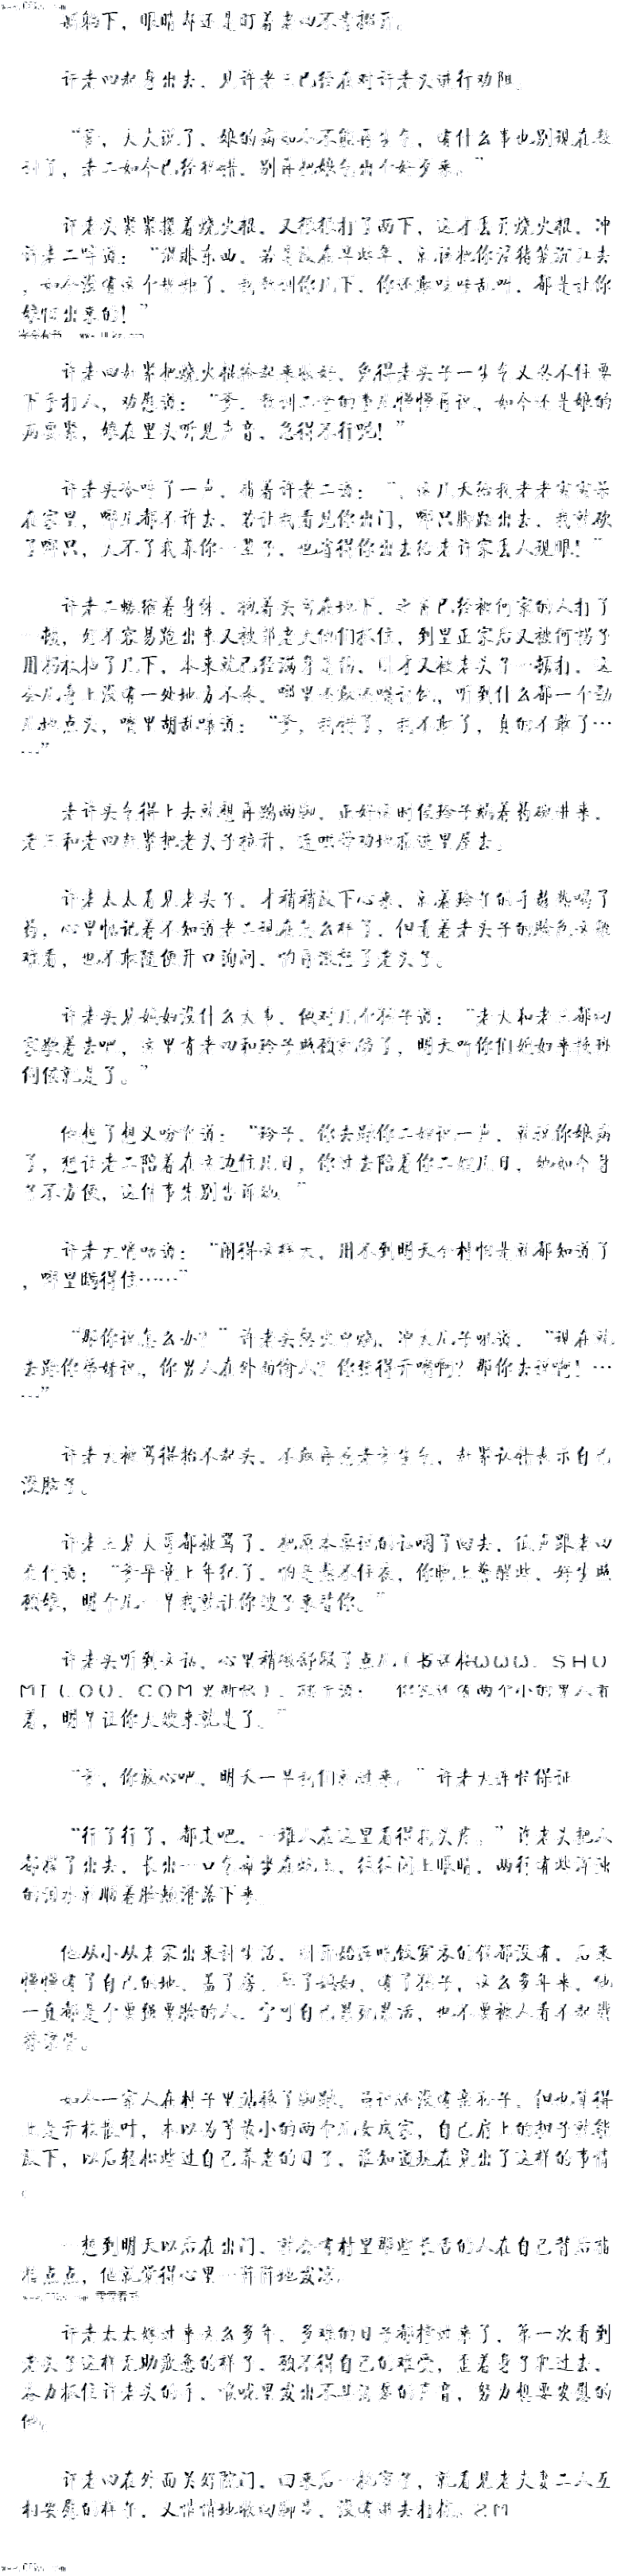 躺下，眼睛却还是盯着老四不肯挪开。
许老四起身出去，见许老三已经在对许老头进行劝阻。
“爹，大夫说了，娘的病如今不能再生气，有什么事也别现在教
训了，老二如今已经知错，别再把娘气出个好歹来。”
许老头紧紧攥着烧火棍，又狠狠打了两下，这才丢开烧火棍，冲
许老二啐道：“混账东西，若是放在早些年，就该把你浸猪笼沉江去
，如今没有这个规矩了，我教训你几下，你还敢吱哇乱叫，都是让你
娘惯出来的！”
许老四赶紧把烧火棍捡起来收好，免得老头子一生气又忍不住要
下手打人，劝慰道：“爹，教训二哥的事儿慢慢再说，如今还是娘的
病要紧，娘在里头听见声音，急得不行呢！”
许老头冷哼了一声，指着许老二道：“这几天给我老老实实呆
在家里，哪儿都不许去，若让我看见你出门，哪只脚踏出去，我就砍
了哪只，大不了我养你一辈子，也省得你出去给老许家丢人现眼！”
许老二蜷缩着身体，抱着头窝在地下，之前已经被何家的人打了
一顿，好不容易跑出来又被郭老大他们抓住，到里正家后又被何
用 了几下，本来就已经满身是伤，刚才又被老头子一顿打，这
会儿身上没有一处地方不疼，哪里还敢还嘴，听到什么都一个劲
儿地点头，嘴里胡乱嚷道：“爹，我错了，我不敢了，真的不敢了…
…”
老许头气得上去就想再踹两脚，正好这时候玲子端着药碗进来，
老三和老四赶紧把老头子拉开，连哄带劝地推进里屋去。
许老太太看见老头子，才稍稍放下心来，就着玲子的手趁热喝了
药，心里惦记着不知道老二现在怎么样了，但看着老头子的脸色这般
难看，也不敢随便开口询问，怕再激怒了老头子。
许老头见媳妇没什么大事，便对几个孩子说：“老大和老三都回
家歇着去吧，这里有老四和玲子照顾就够了，明天叫你们媳妇来换班
伺候就是了。”
他想了想又吩咐道：“玲子，你去跟你二嫂说一声，就说你娘病
了，想让老二陪着在这边住几日，你过去陪着你二嫂几日，她如今身
子不方便，这件事先别告诉她。”
许老大嘀咕道：“闹得这样大，用不到明天全村怕是就都知道了
，哪里瞒得住……”
“那你说怎么办？”许老头怒火中烧，冲大儿子吼道，“现在就
去跟你弟妹说，你男人在外面偷人？你张得开嘴啊？那你去说啊！…
…”
许老大被骂得抬不起头，不敢再惹老爹生气，赶紧认错表示自己
没脑子。
许老三见大哥都被骂了，把原本要说的话咽了回去，低声跟老四
交代道：“爹毕竟上年纪了，怕是熬不住夜，你晚上警醒些，好生照
顾娘，明个儿一早我就让你嫂子来替你。”
许老头听到这话，心里稍微舒服了点儿（书迷楼WWW．ＳＨＵ
ＭＩＬＯＵ．ＣＯＭ更新快），说道： 你家还有两个小的要人看
着，明早让你大嫂来就是了。”
“爹，你放心吧，明天一早我们就过来。”许老大连忙保证
“行了行了，都走吧，一堆人在这里看得我头疼。”许老头把人
都撵了出去，长出一口气面坐在炕上，缓缓闭上眼睛，两行有些浑浊
的泪水就顺着脸颊滑落下来。
他从小从老家出来讨生活，刚开始连吃饭穿衣的钱都没有，后来
慢慢有了自己的地，盖了房，娶了媳妇，有了孩子，这么多年来，他
一直都是个要强要脸的人，宁可自己累死累活，也不要被人看不起
如今一家人在村子里站稳了脚跟，虽说还没有亲孙子，但也算得
上是开枝散叶，本以为等最小的两个儿女成家，自己肩上的担子就能
放下，以后轻松些过自己养老的日子，谁知道现在竟出了这样的事情
。
一想到明天以后在出门，就会有村里那些长舌的人在自己背后指
指点点，他就觉得心里一阵阵地发凉。
许老太太嫁过来这么多年，多难的日子都挺过来了，第一次看到
老头子这样无助疲惫的样子，顾不得自己的难受，歪着身子靠过去，
尽力抓住许老头的手，喉咙里发出不甚清楚的声音，努力想要安慰的
他。
许老四在外面关好院门，回来后一推家门，就看见老夫妻二人互
相安慰的样子，又悄悄地收回脚步，没有进去打扰。ＺＭ